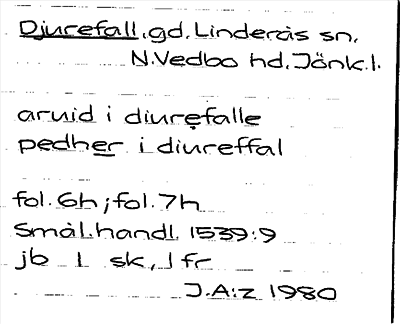 Djurefall, gd, Linderås sn,
N. Vedbo hd, Jönk.l.
aruid i diurefalle
pedher i diureffal
fol. 6h; fol. 7h
Smål.handl. 1539:9
jb 1 sk, 1 fr
J.A:z 1980